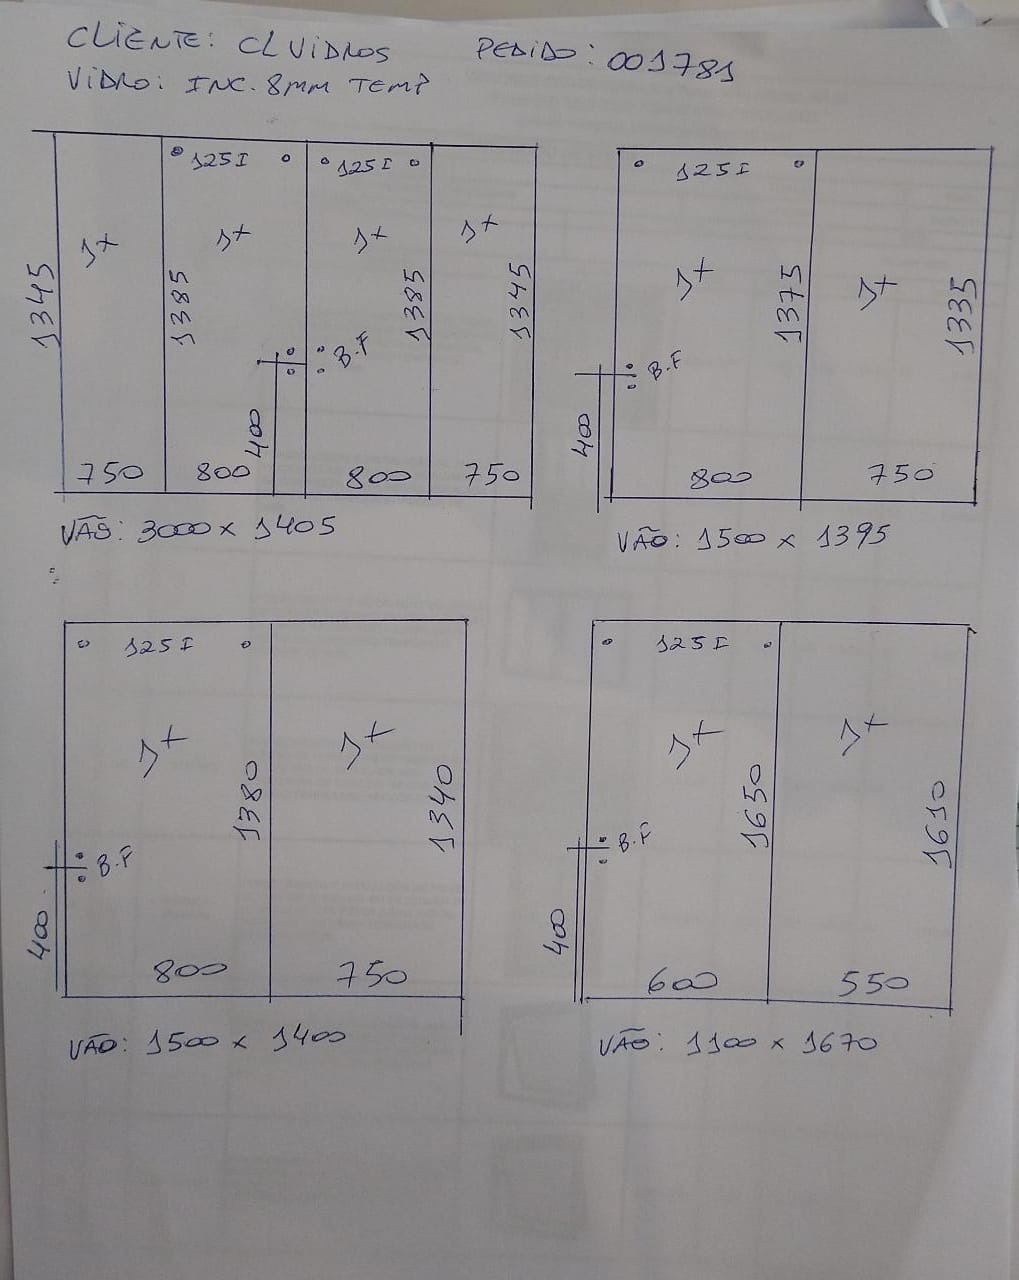 CLIENTE: CL VIDROS PEDIDO: 001781
VIDRO: INC. 8MM TEMP
125I 125I
1+ 1+ 1+ 1+
1345 1385 1385 1345
B.F
400
750 800 800 750
VÃO: 3000 x 1405
125I
1+ 1+
1375 1335
B.F
400
800 750
VÃO: 1500 x 1395
125I
1+ 1+
1380 1340
B.F
400
800 750
VÃO: 1500 x 1400
125I
1+ 1+
1650 1610
B.F
400
600 550
VÃO: 1100 x 1670